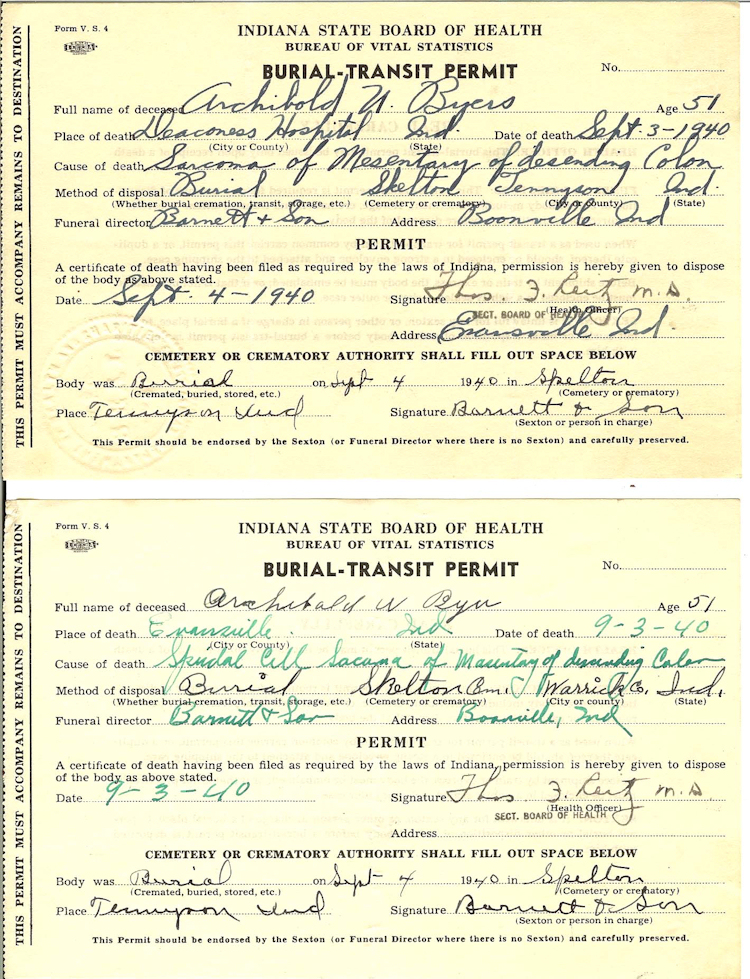 THIS PERMIT MUST ACCOMPANY REMAINS TO DESTINATION
Form V. S. 4
INDIANA STATE BOARD OF HEALTH
BUREAU OF VITAL STATISTICS
BURIAL-TRANSIT PERMIT
No.
Full name of deceased Archibold N. Byers Age 51
Place of death Deaconess Hospital Ind. Date of death Sept. 3-1940
(City or County) (State)
Cause of death Sarcoma of Mesentary of desending Colon
Method of disposal Burial Skelton Tennyson Ind.
(Whether burial cremation, transit, storage, etc.) (Cemetery or crematory) (City or county) (State)
Funeral director Barnett & Son Address Boonville Ind
PERMIT
A certificate of death having been filed as required by the laws of Indiana, permission is hereby given to dispose
of the body as above stated.
Date Sept. 4-1940 Signature Thos. F. Reitz M.D.
(Health Officer)
SECT. BOARD OF HEALTH
Address Evansville Ind
CEMETERY OR CREMATORY AUTHORITY SHALL FILL OUT SPACE BELOW
Body was Burial on Sept 4 1940 in Spelton
(Cremated, buried, stored, etc.) (Cemetery or crematory)
Place Tennyson Ind Signature Barnett & Son
(Sexton or person in charge)
This Permit should be endorsed by the Sexton (or Funeral Director where there is no Sexton) and carefully preserved.
THIS PERMIT MUST ACCOMPANY REMAINS TO DESTINATION
Form V. S. 4
INDIANA STATE BOARD OF HEALTH
BUREAU OF VITAL STATISTICS
BURIAL-TRANSIT PERMIT
No.
Full name of deceased Archibald N Byer Age 51
Place of death Evansville. Ind Date of death 9-3-40
(City or County) (State)
Cause of death Spindal Cell Sacoma of Masentary of desending Colon
Method of disposal Burial Skelton Cem. Warrick Co. Ind.
(Whether burial cremation, transit, storage, etc.) (Cemetery or crematory) (City or county) (State)
Funeral director Barnett & Son Address Boonville, Ind
PERMIT
A certificate of death having been filed as required by the laws of Indiana, permission is hereby given to dispose
of the body as above stated.
Date 9-3-40 Signature Thos. F. Reitz M.D.
(Health Officer)
SECT. BOARD OF HEALTH
Address
CEMETERY OR CREMATORY AUTHORITY SHALL FILL OUT SPACE BELOW
Body was Burial on Sept 4 1940 in Spelton
(Cremated, buried, stored, etc.) (Cemetery or crematory)
Place Tennyson Ind Signature Barnett & Son
(Sexton or person in charge)
This Permit should be endorsed by the Sexton (or Funeral Director where there is no Sexton) and carefully preserved.